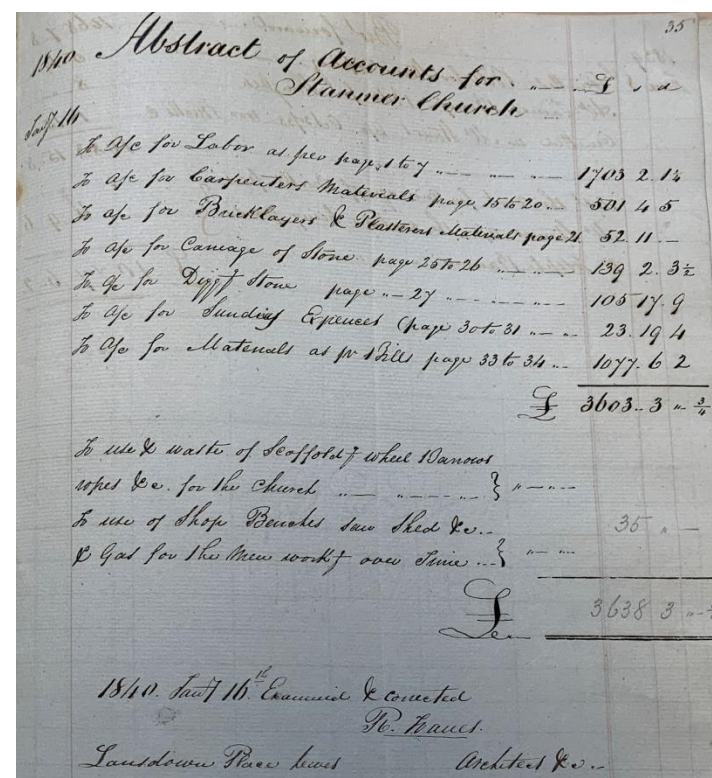 35
1840. Abstract of Accounts for
Stanmer Church
£ s d
Jany. 16
To A/c for Labor as per page 1 to 7 1703 2. 1¼
To a/c for Carpenters Materials page 15 to 20 501 4 5
To a/c for Bricklayers & Plasterers Materials page 21 52. 11. —
To a/c for Carriage of Stone page 25 to 26 139 2. 3½
To a/c for Diggg Stone page 27 105 17. 9
To a/c for Sundry Expences (page 30 to 31 23. 19 4
To a/c for Materials as pr Bills page 33 to 34 1077. 6 2
£ 3603.. 3 " ¾
To use & waste of Scaffoldg wheel Barrows
ropes &c. for the Church
To use of Shop Benches saw Shed &c.. 35 " —
& Gas for the Men workg over Time
£ 3638 3
1840. Jany 16th Examined & corrected
Lansdown Place Lewes Architect &c..